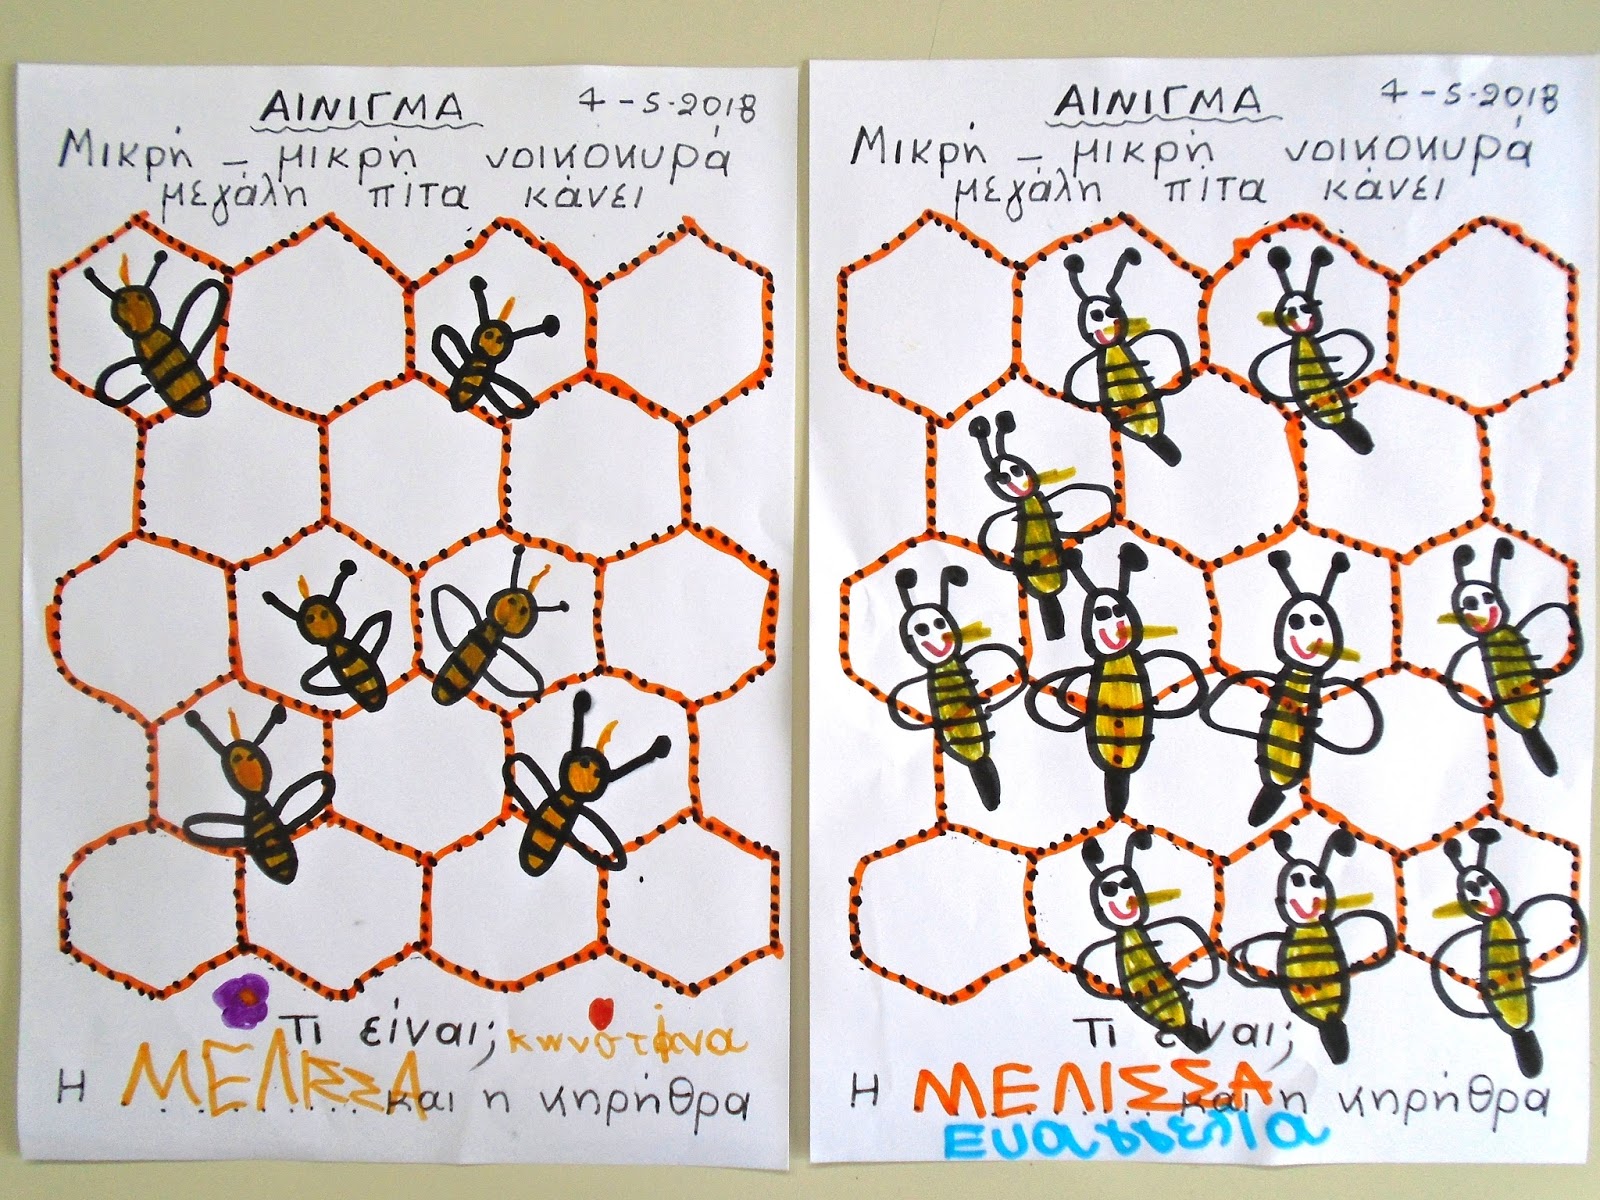 ΑΙΝΙΓΜΑ 7-5-2018
Μικρή - μικρή νοικοκυρά
μεγάλη πίτα κάνει
Τι είναι; κωνστίνα
Η ΜΕΛΙΣΣΑ και η κηρήθρα
ΑΙΝΙΓΜΑ 7-5-2018
Μικρή - μικρή νοικοκυρά
μεγάλη πίτα κάνει
Τι είναι;
Η ΜΕΛΙΣΣΑ και η κηρήθρα
Ευαγγελία